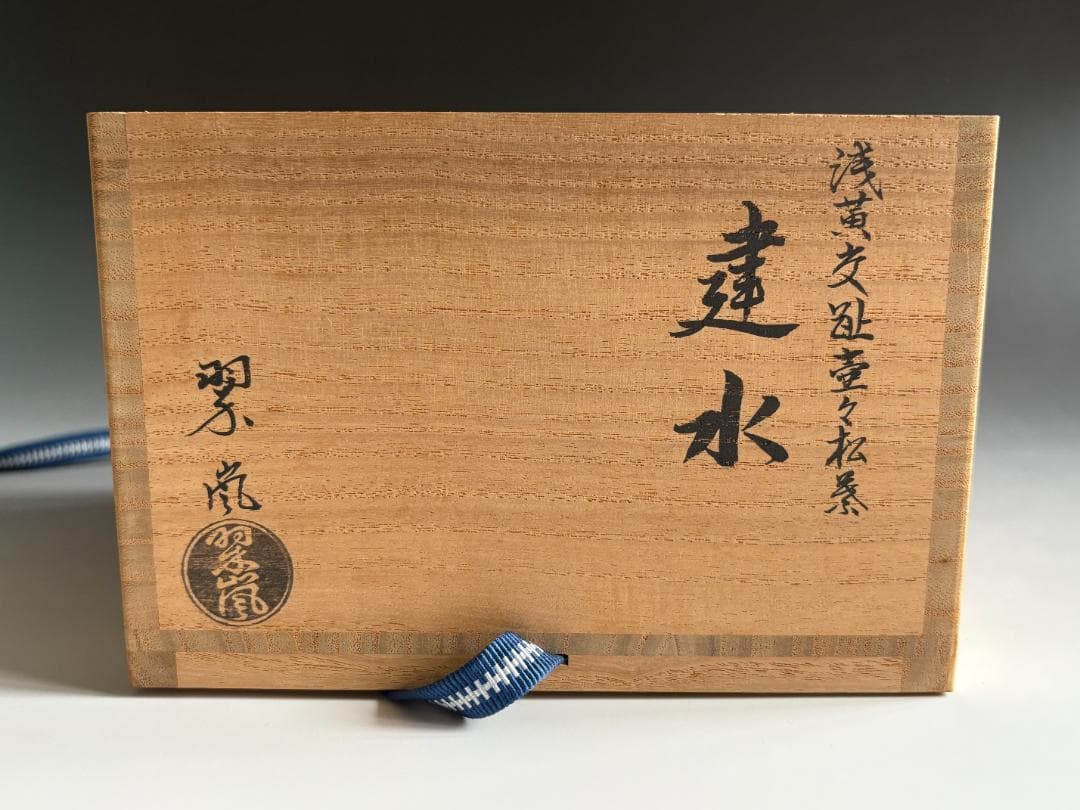 浅黄交趾壺々松葉
建水
翠嵐
翠嵐